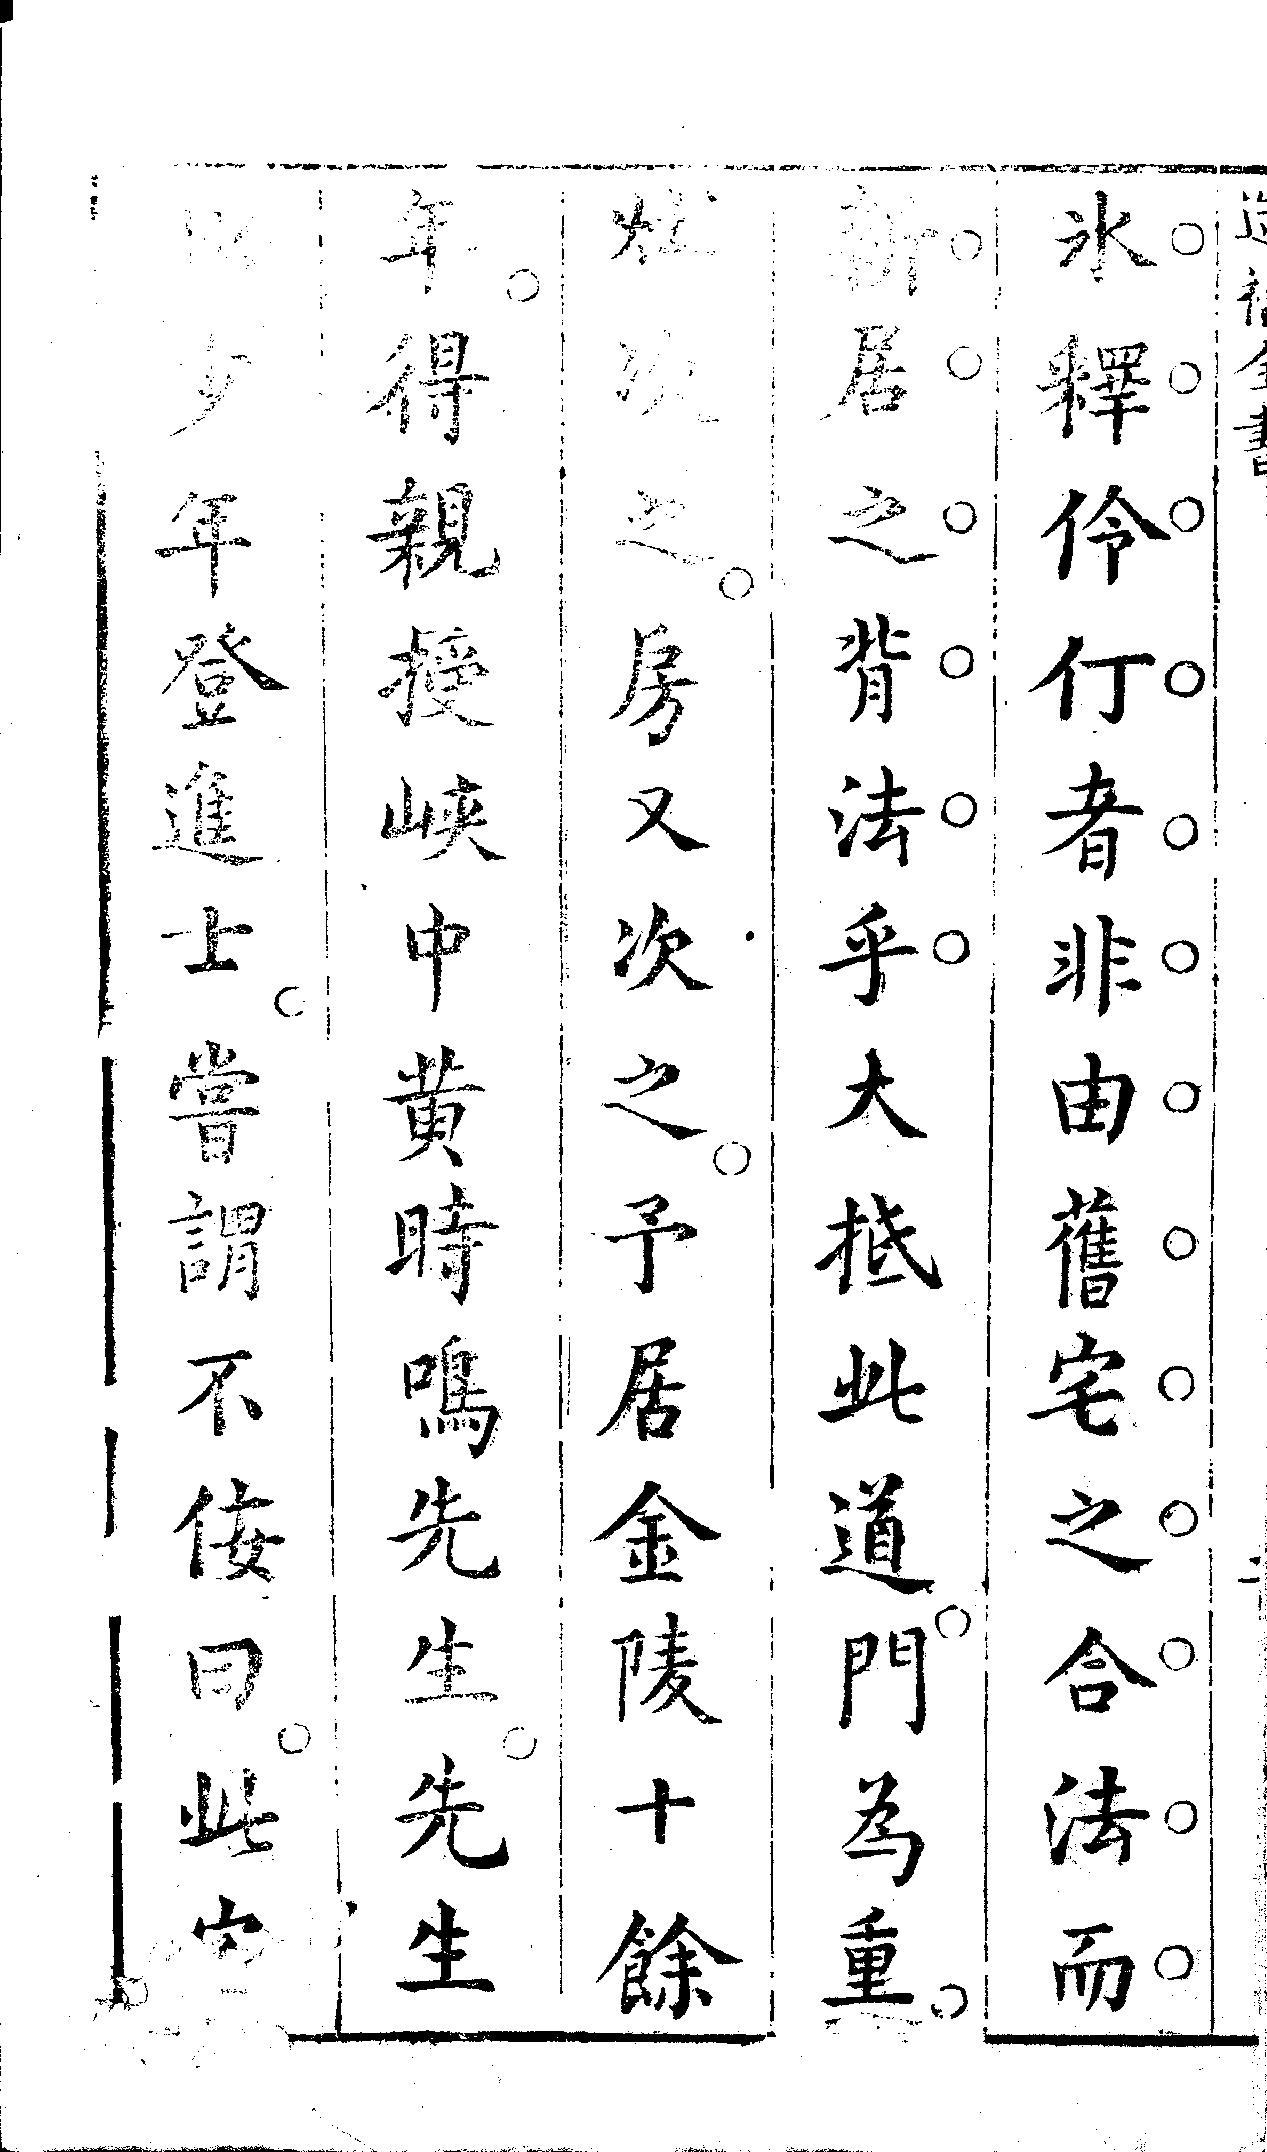 造福全書
氷釋伶仃者非由舊宅之合法而
新居之背法乎大抵此道門為重
灶次之房又次之予居金陵十餘
年得親授峽中黄時鳴先生先生
少年登進士嘗謂不佞曰此